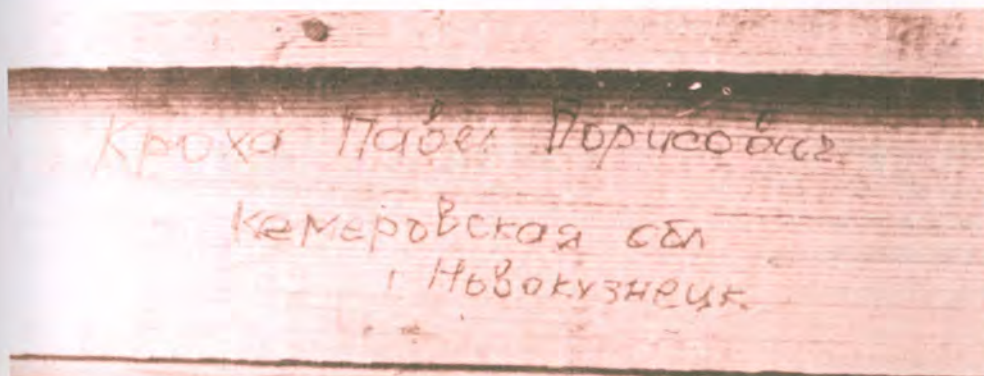 Кроха Павел Порисовиг
Кемеровская обл
г Новокузнецк